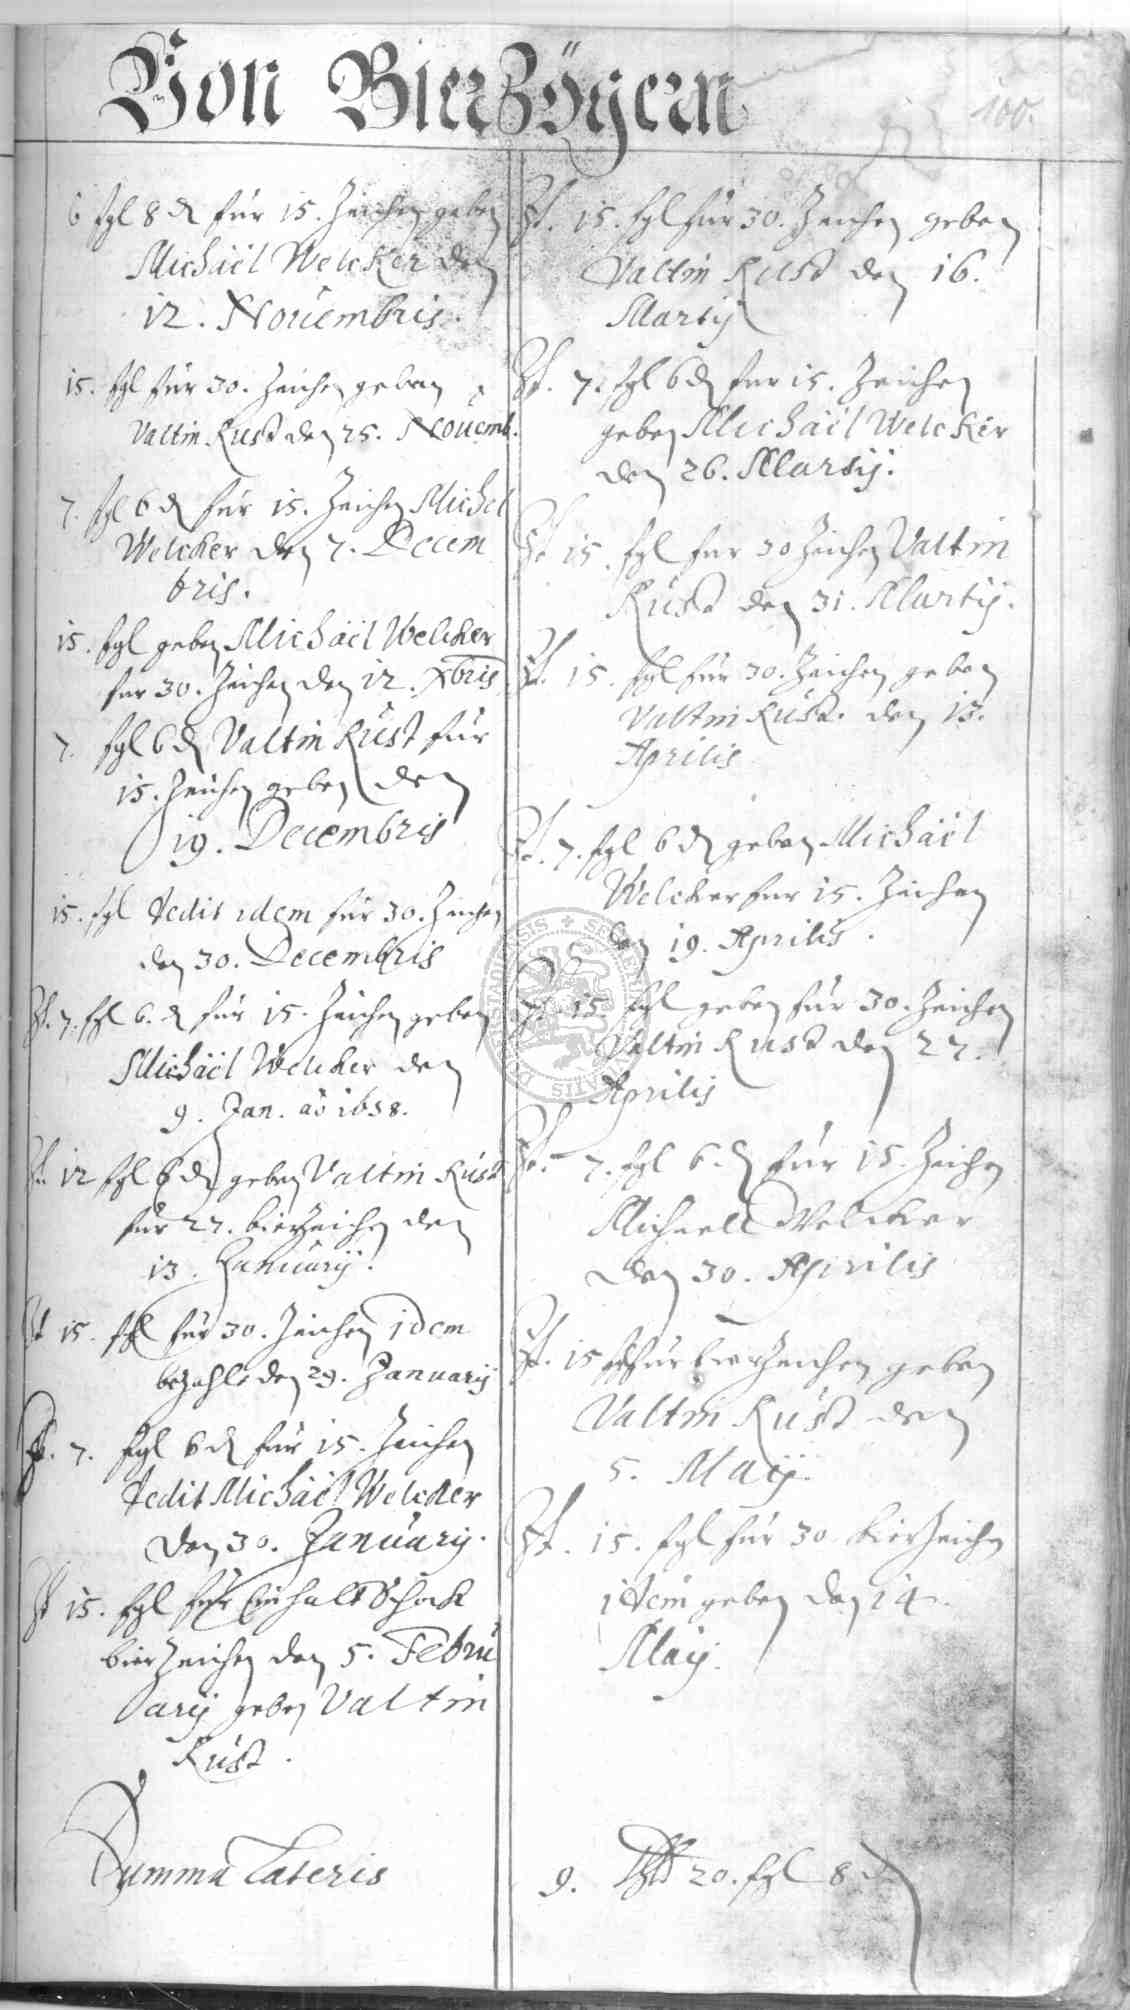 Von Bierzögern
100.
6 ßgl 8 ₰ für 15. Zeichen geben
Michäel Welcker den
12. Nouembris.
15. ßgl für 30. Zeichen geben
Valtin Rust den 25. Nouemb.
7. ßgl 6 ₰ für 15. Zeichen Michel
Welcker den 7. Decem
bris.
15. ßgl geben Michäel Welcker
für 30. Zeichen den 12. Xbris
7. ßgl 6 ₰ Valtin Rust für
15. Zeichen geben den
19. Decembris
15. ßgl dedit idem für 30. Zeichen
den 30. Decembris
7. ßgl 6. ₰ für 15. Zeichen geben
Michäel Welcker den
9. Jan. aō 1658.
12 ßgl 6 ₰ geben Valtin Rust
für 27. bierzeichen den
13. Januarij.
15. ßgl für 30. Zeichen idem
bezahlt den 29. Januarij
7. ßgl 6 ₰ für 15. Zeichen
dedit Michäel Welcker
den 30. Januarij.
15. ßgl für Ein halb Schock
bierzeichen den 5. Febru
arij geben Valtin
Rust.
Summa Lateris
15. ßgl für 30. Zeichen geben
Valtin Rust den 16.
Martij
7. ßgl 6 ₰ für 15. Zeichen
geben Michäel Welcker
den 26. Martij.
15. ßgl für 30 Zeichen Valtin
Rust den 31. Martij.
15. ßgl für 30. Zeichen geben
Valtin Rust. den 13.
Aprilis
7. ßgl 6 ₰ geben Michäel
Welcker für 15. Zeichen
den 19. Aprilis.
15. ßgl geben für 30. Zeichen
Valtin Rust den 27.
Aprilis
7. ßgl 6. ₰ für 15. Zeichen
Michaell Welcker
den 30. Aprilis
15 für bierzeichen geben
Valtin Rust den
5. Maij.
15. ßgl für 30 bierzeichen
idem geben den 14.
Maij.
9. 20. ßgl 8 ₰